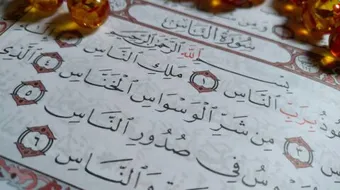 سُورَةُ النَّاسِ
بِسْمِ اللَّهِ الرَّحْمَٰنِ الرَّحِيمِ
بِرَبِّ النَّاسِ ١ مَلِكِ النَّاسِ
مِن شَرِّ الْوَسْوَاسِ الْخَنَّاسِ ٤ الَّذِي
فِي صُدُورِ النَّاسِ ٥
النَّاسِ ٦